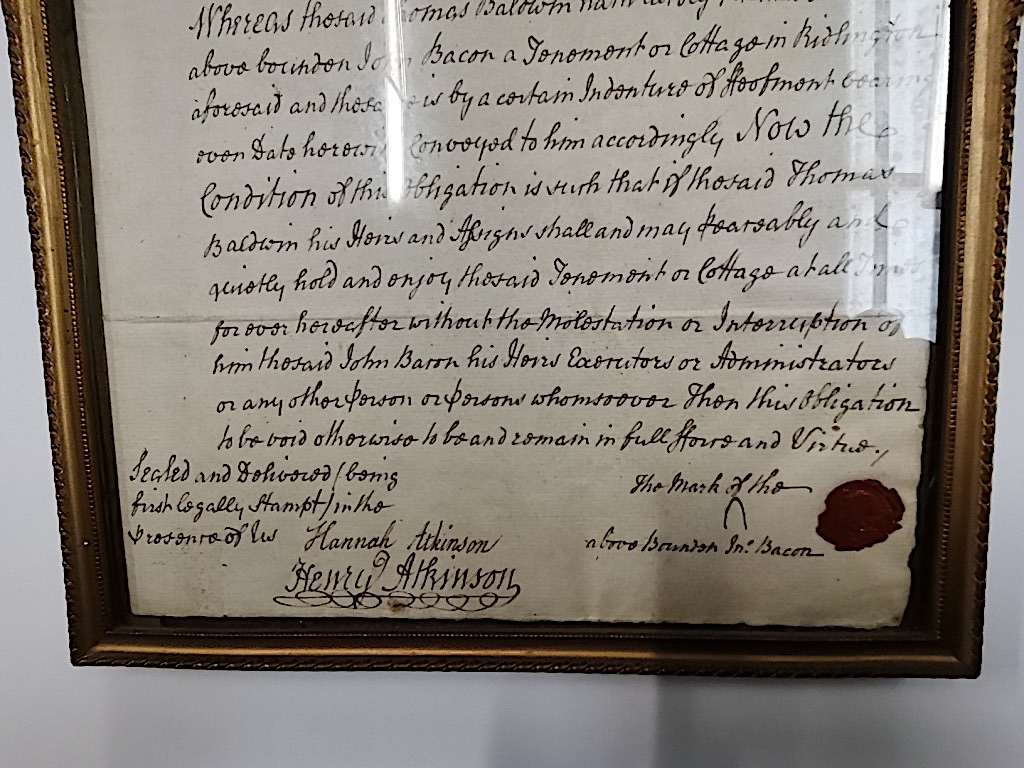 Whereas the said Thomas Baldwin hath
above bounden John Bacon a Tenement or Cottage in Ridlington
aforesaid and the same is by a certain Indenture of Feofment bearing
even Date herewith Conveyed to him accordingly Now the
Condition of this Obligation is such that if the said Thomas
Baldwin his Heirs and Assigns shall and may peaceably and
quietly hold and enjoy the said Tenement or Cottage at all Times
for ever hereafter without the Molestation or Interruption of
him the said John Bacon his Heirs Executors or Administrators
or any other Person or Persons whomsoever Then this Obligation
to be void otherwise to be and remain in full fforce and Virtue.
Sealed and Delivered (being
first legally Stampt) in the
Presence of Us
Hannah Atkinson
Henry Atkinson
The Mark of the
above Bounden Jno. Bacon